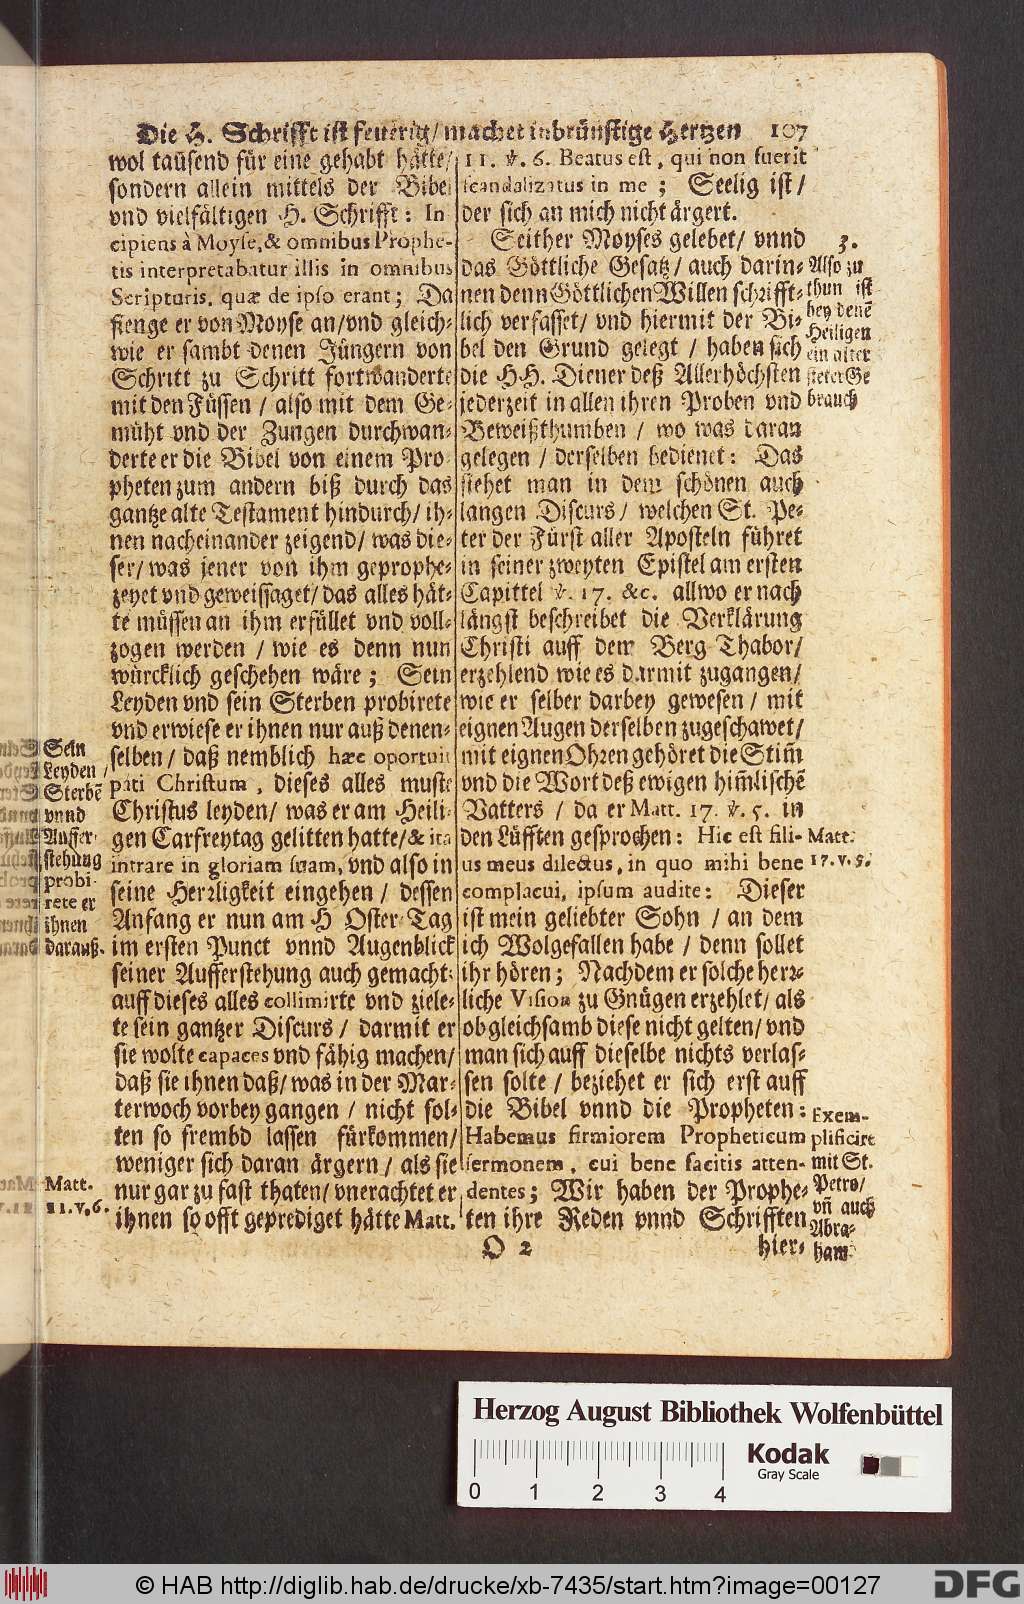 Die H. Schrifft ist feuerig/ machet inbrünstige Hertzen 107
wol tausend für eine gehabt hätte/
sondern allein mittels der Bibel
vnd vielfältigen H. Schrifft: In
cipiens à Moyse, & omnibus Prophe-
tis interpretabatur illis in omnibus
Scripturis, quæ de ipso erant; Da
fienge er von Moyse an/ vnd gleich-
wie er sambt denen Jüngern von
Schritt zu Schritt fortwanderte
mit den Füssen / also mit dem Ge-
müht vnd der Zungen durchwan-
derte er die Bibel von einem Pro
pheten zum andern biß durch das
gantze alte Testament hindurch/ ih-
nen nacheinander zeigend/ was die-
ser/ was jener von ihm geprophe-
zeyet vnd geweissaget/ das alles hät-
te müssen an ihm erfüllet vnd voll-
zogen werden / wie es denn nun
würcklich geschehen wäre; Sein
Leyden vnd sein Sterben probirete
vnd erwiese er ihnen nur auß denen-
selben / daß nemblich hæc oportuit
pati Christum, dieses alles muste
Christus leyden/ was er am Heili-
gen Carfreytag gelitten hatte/ & ita
intrare in gloriam suam, vnd also in
seine Herrligkeit eingehen / dessen
Anfang er nun am H Oster-Tag
im ersten Punct vnnd Augenblick
seiner Aufferstehung auch gemacht:
auff dieses alles collimirte vnd ziele-
te sein gantzer Discurs / darmit er
sie wolte capaces vnd fähig machen/
daß sie ihnen daß/ was in der Mar-
terwoch vorbey gangen / nicht sol-
ten so frembd lassen fürkommen/
weniger sich daran ärgern / als sie
nur gar zu fast thaten/ vnerachtet er
ihnen so offt geprediget hätte Matt.
Sein
Leyden /
Sterbē
vnnd
Auffer-
stehung
probi-
rete er
ihnen
darauß.
Matt.
11. v. 6.
11. ℣. 6. Beatus est, qui non fuerit
scandalizatus in me; Seelig ist/
der sich an mich nicht ärgert.
Seither Moyses gelebet/ vnnd
das Göttliche Gesatz/ auch darin-
nen denn Göttlichen Willen schrifft-
lich verfasset/ vnd hiermit der Bi-
bel den Grund gelegt / haben sich
die HH. Diener deß Allerhöchsten
jederzeit in allen ihren Proben vnd
Beweißthumben / wo was daran
gelegen / derselben bedienet: Das
siehet man in dem schönen auch
langen Discurs/ welchen St. Pe-
ter der Fürst aller Aposteln führet
in seiner zweyten Epistel am ersten
Capittel ℣. 17. &c. allwo er nach
längst beschreibet die Verklärung
Christi auff dem Berg Thabor/
erzehlend wie es darmit zugangen/
wie er selber darbey gewesen / mit
eignen Augen derselben zugeschawet/
mit eignen Ohren gehöret die Stim̄
vnd die Wort deß ewigen him̄lischē
Vatters / da er Matt. 17. ℣. 5. in
den Lüfften gesprochen: Hic est fili-
us meus dilectus, in quo mihi bene
complacui, ipsum audite: Dieser
ist mein geliebter Sohn / an dem
ich Wolgefallen habe / denn sollet
ihr hören; Nachdem er solche herr-
liche Vision zu Gnügen erzehlet/ als
ob gleichsamb diese nicht gelten/ vnd
man sich auff dieselbe nichts verlas-
sen solte / beziehet er sich erst auff
die Bibel vnnd die Propheten:
Habemus firmiorem Propheticum
sermonem, cui bene facitis atten-
dentes; Wir haben der Prophe-
ten ihre Reden vnnd Schrifften
3.
Also zu
thun ist
bey denē
Heiligen
ein alter
steter Ge
brauch
Matt.
17. v. 5.
Exem-
plificirt
mit St.
Petro/
vn̄ auch
Abra-
ham
O 2
hier-
Herzog August Bibliothek Wolfenbüttel
Kodak
Gray Scale
0 1 2 3 4
© HAB http://diglib.hab.de/drucke/xb-7435/start.htm?image=00127
DFG